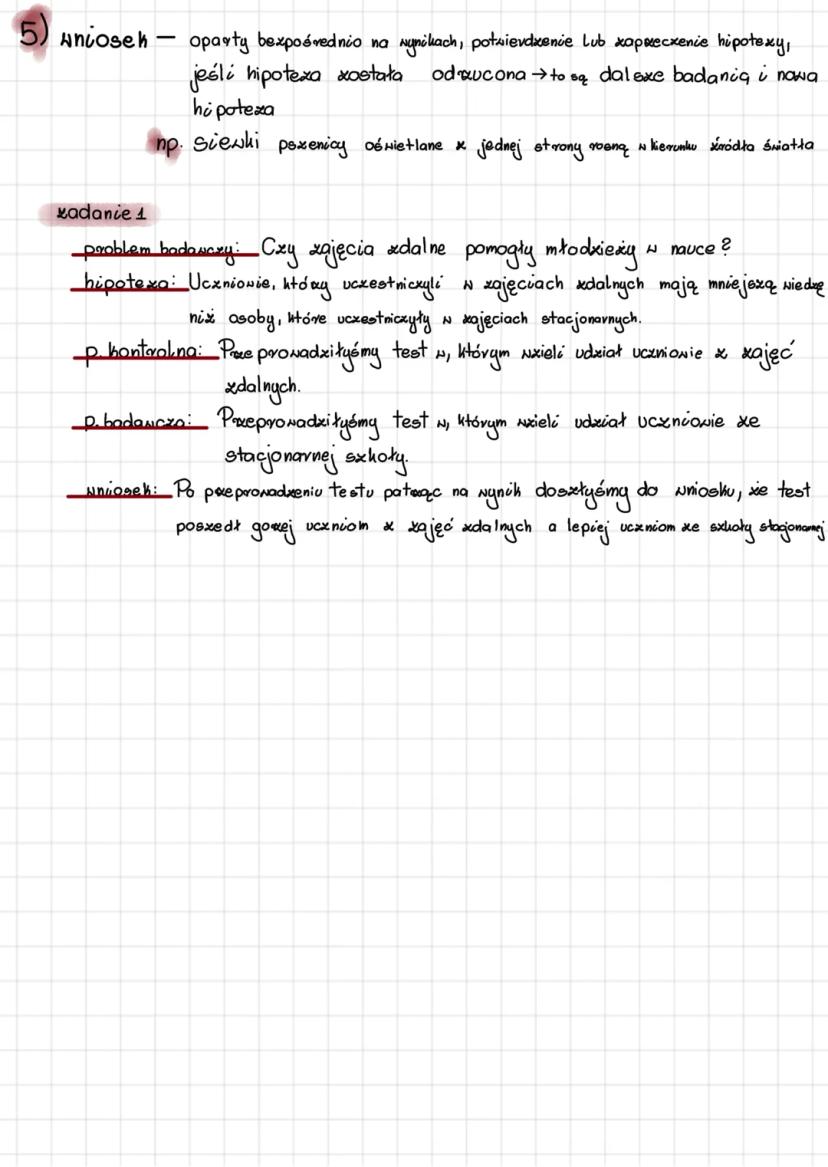 5) wniosek — oparty bezpośrednio na wynikach, potwierdzenie lub zaprzeczenie hipotezy,
jeśli hipoteza została odrzucona → to są dalsze badania i nowa
hipoteza
np. siewki pszenicy oświetlane z jednej strony rosną w kierunku źródła światła
zadanie 1
problem badawczy: Czy zajęcia zdalne pomogły młodzieży w nauce?
hipoteza: Uczniowie, którzy uczestniczyli w zajęciach zdalnych mają mniejszą wiedzę
niż osoby, które uczestniczyły w zajęciach stacjonarnych.
p. kontrolna: Przeprowadziłyśmy test w, którym wzieli udział uczniowie z zajęć
zdalnych.
p. badawcza: Przeprowadziłyśmy test w, którym wzieli udział uczniowie ze
stacjonarnej szkoły.
wniosek: Po przeprowadzeniu testu patrząc na wynik doszłyśmy do wniosku, że test
poszedł gorzej uczniom z zajęć zdalnych a lepiej uczniom ze szkoły stacjonarnej